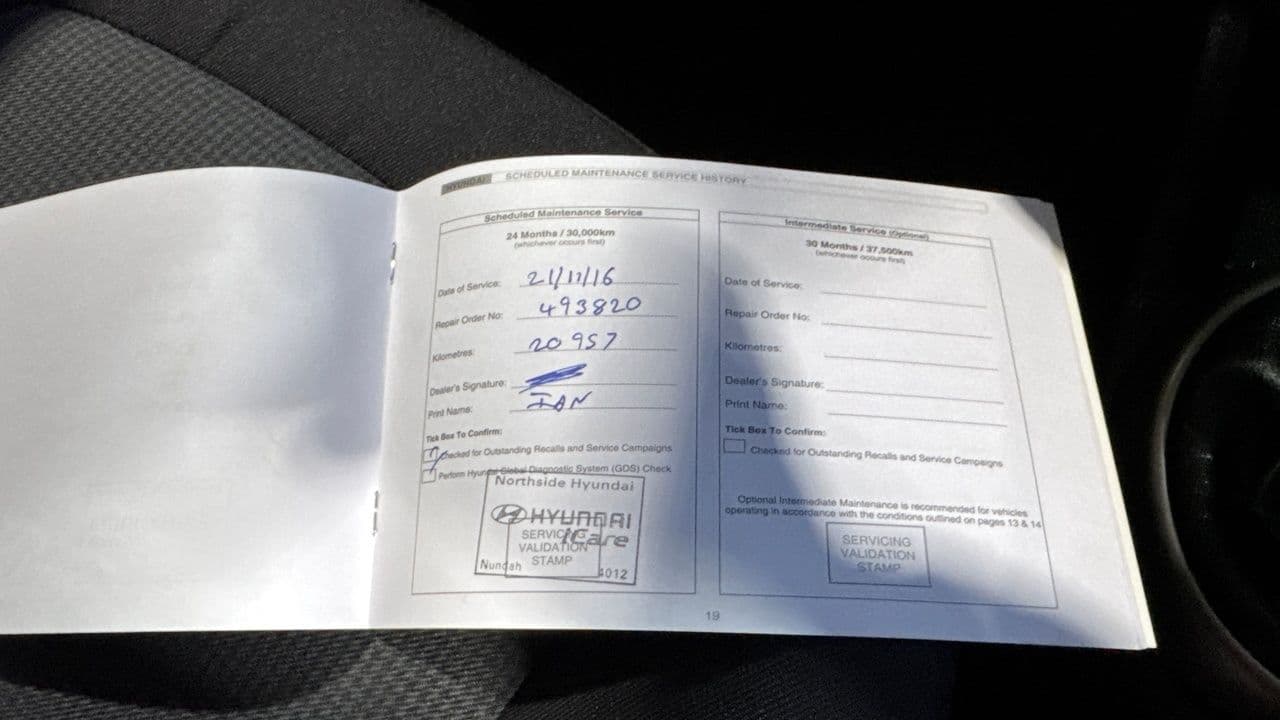 HYUNDAI SCHEDULED MAINTENANCE SERVICE HISTORY
Scheduled Maintenance Service
24 Months / 30,000km
(whichever occurs first)
Date of Service: 21/11/16
Repair Order No: 493820
Kilometres: 20957
Dealer's Signature:
Print Name: IAN
Tick Box To Confirm:
Checked for Outstanding Recalls and Service Campaigns
Perform Hyundai Global Diagnostic System (GDS) Check
Northside Hyundai
HYUNDAI
iCare
SERVICING
VALIDATION
STAMP
Nundah 4012
Intermediate Service (Optional)
30 Months / 37,500km
(whichever occurs first)
Date of Service:
Repair Order No:
Kilometres:
Dealer's Signature:
Print Name:
Tick Box To Confirm:
Checked for Outstanding Recalls and Service Campaigns
Optional Intermediate Maintenance is recommended for vehicles
operating in accordance with the conditions outlined on pages 13 & 14
SERVICING
VALIDATION
STAMP
19